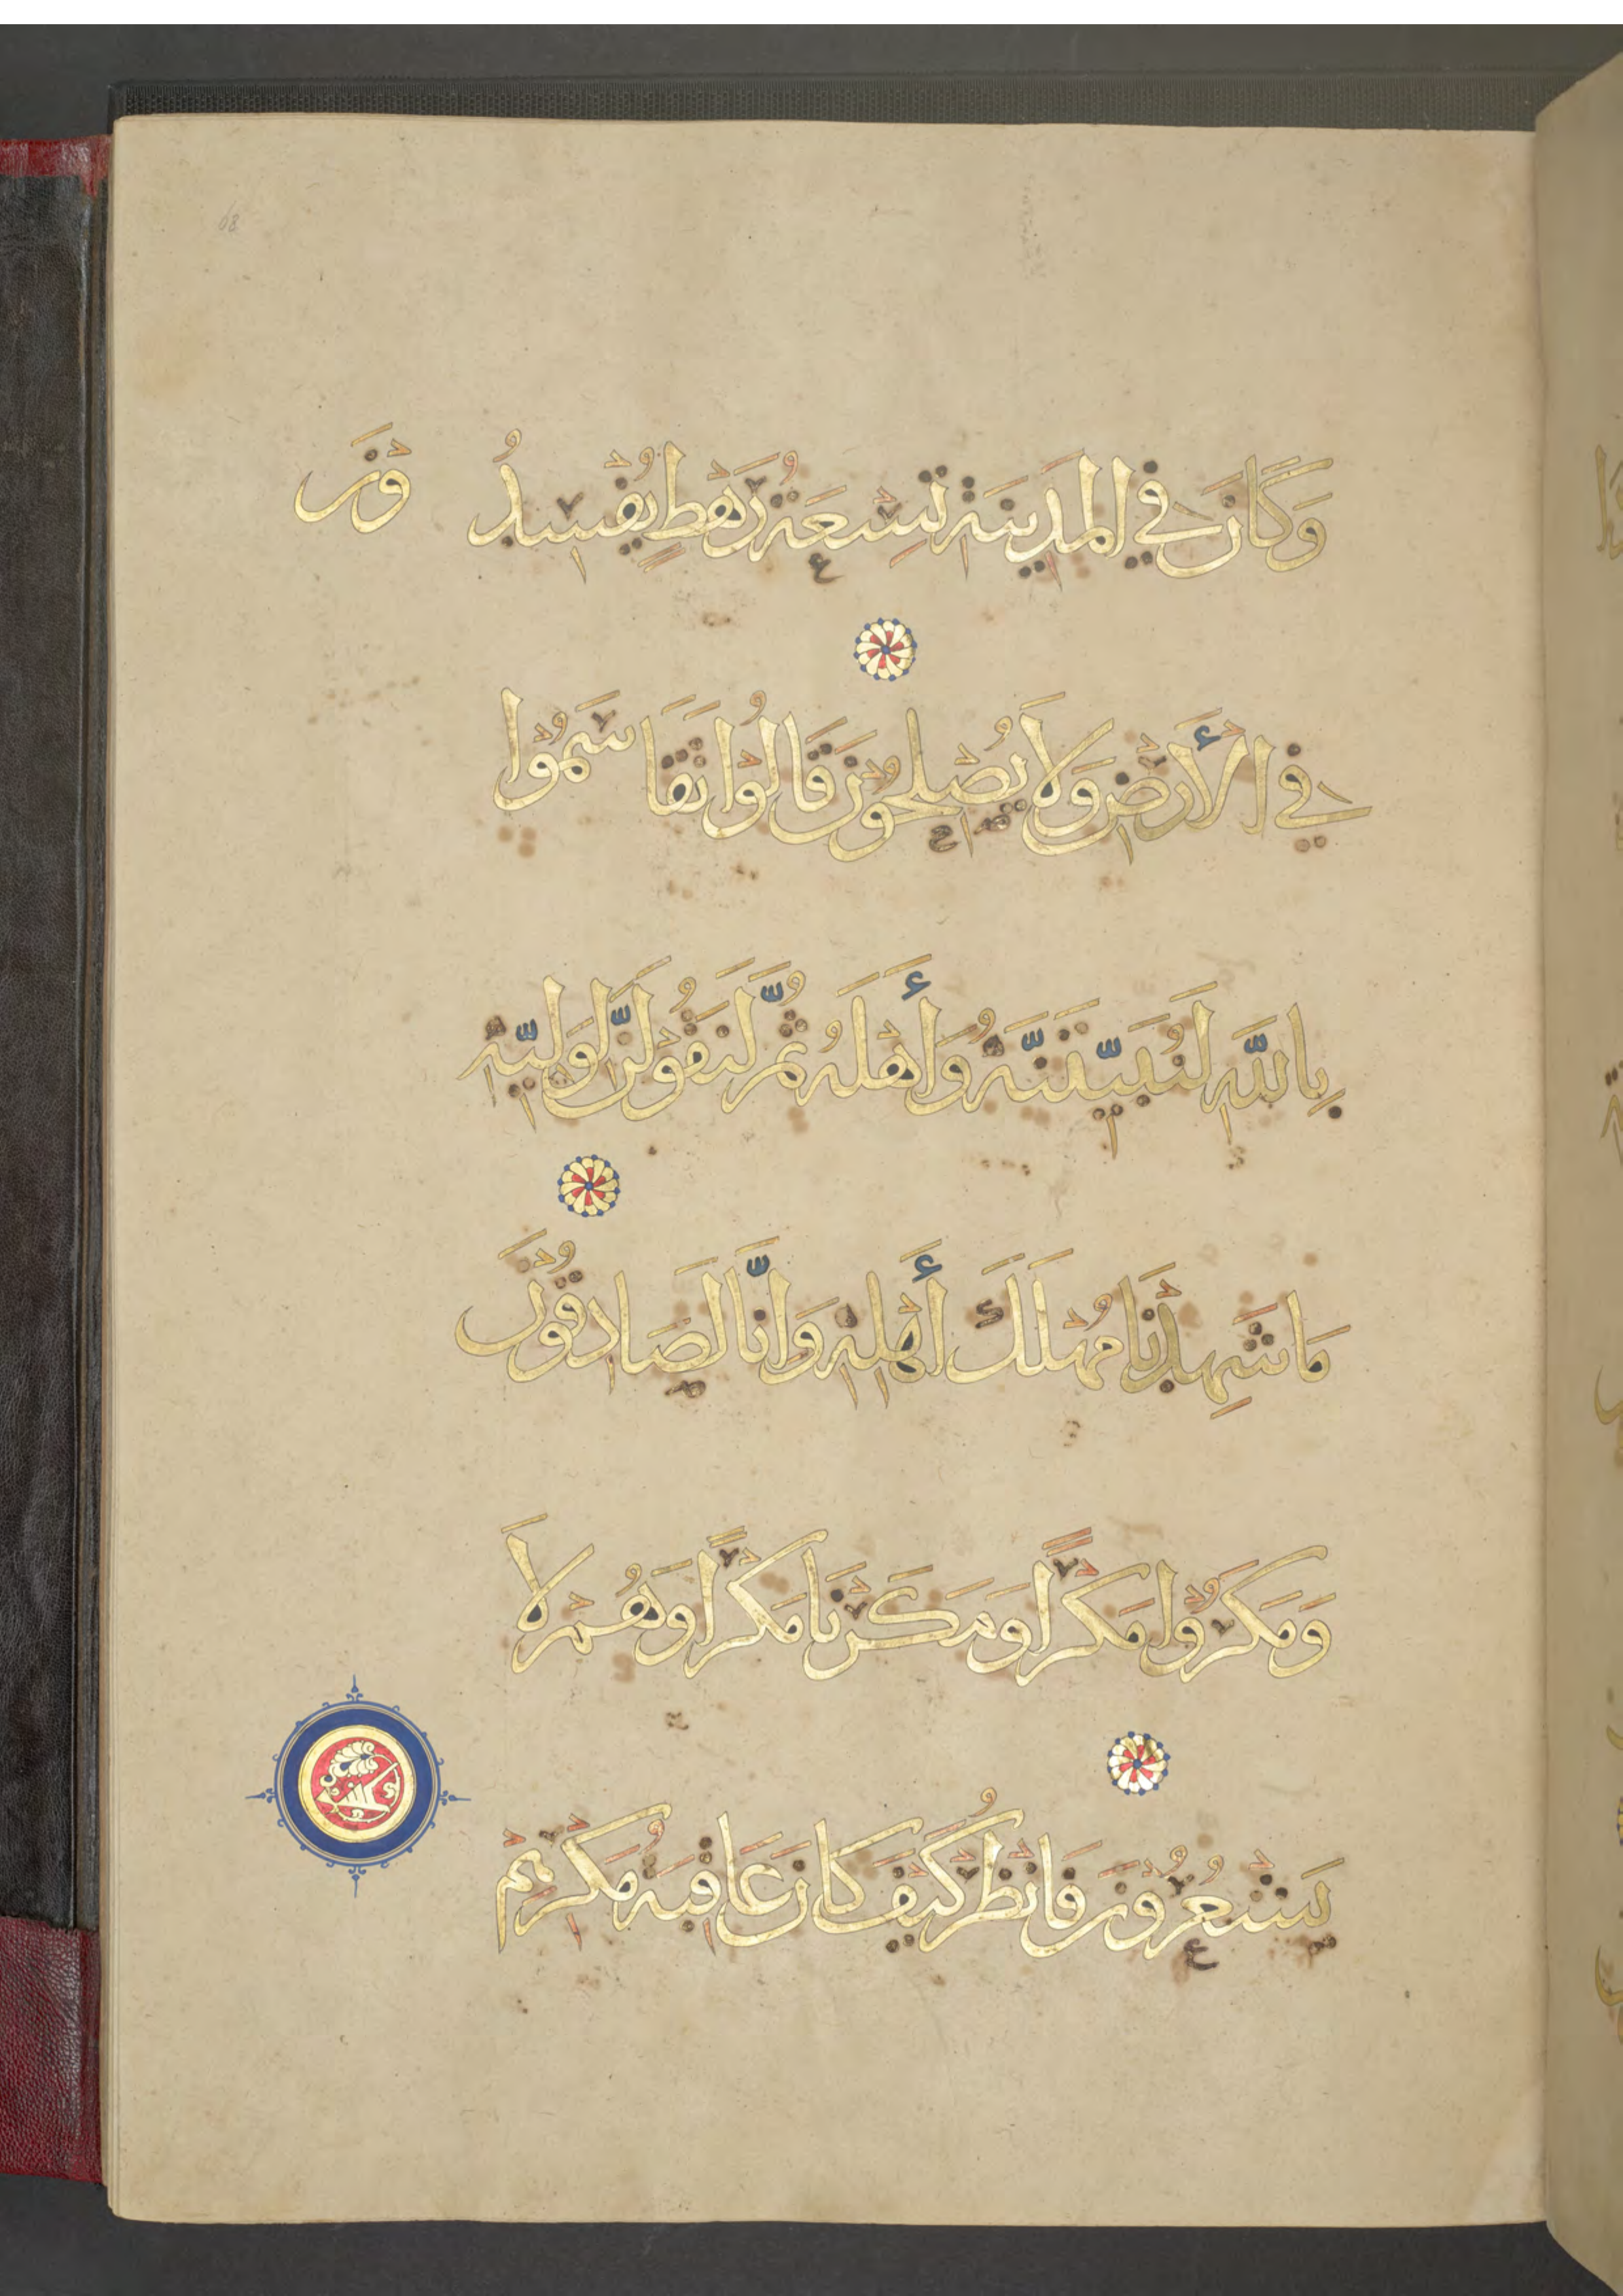 وَكَانَ فِي الْمَدِينَةِ تِسْعَةُ رَهْطٍ يُفْسِدُوْنَ
فِي الْأَرْضِ وَلَا يُصْلِحُوْنَ قَالُوْا تَقَاسَمُوْا
بِاللَّهِ لَنُبَيِّتَنَّهُ وَأَهْلَهُ ثُمَّ لَنَقُوْلَنَّ لِوَلِيِّهِ
مَا شَهِدْنَا مُهْلَكَ أَهْلِهِ وَإِنَّا لَصَادِقُوْنَ
وَمَكَرُوْا مَكْرًا وَمَكَرْنَا مَكْرًا وَهُمْ لَا
يَشْعُرُوْنَ فَانْظُرْ كَيْفَ كَانَ عَاقِبَةُ مَكْرِهِمْ
68